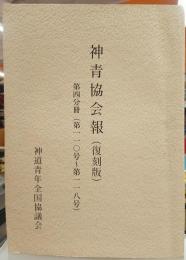 神青協会報（復刻版）
第四分冊（第一一〇号～第一一八号）
神道青年全国協議会